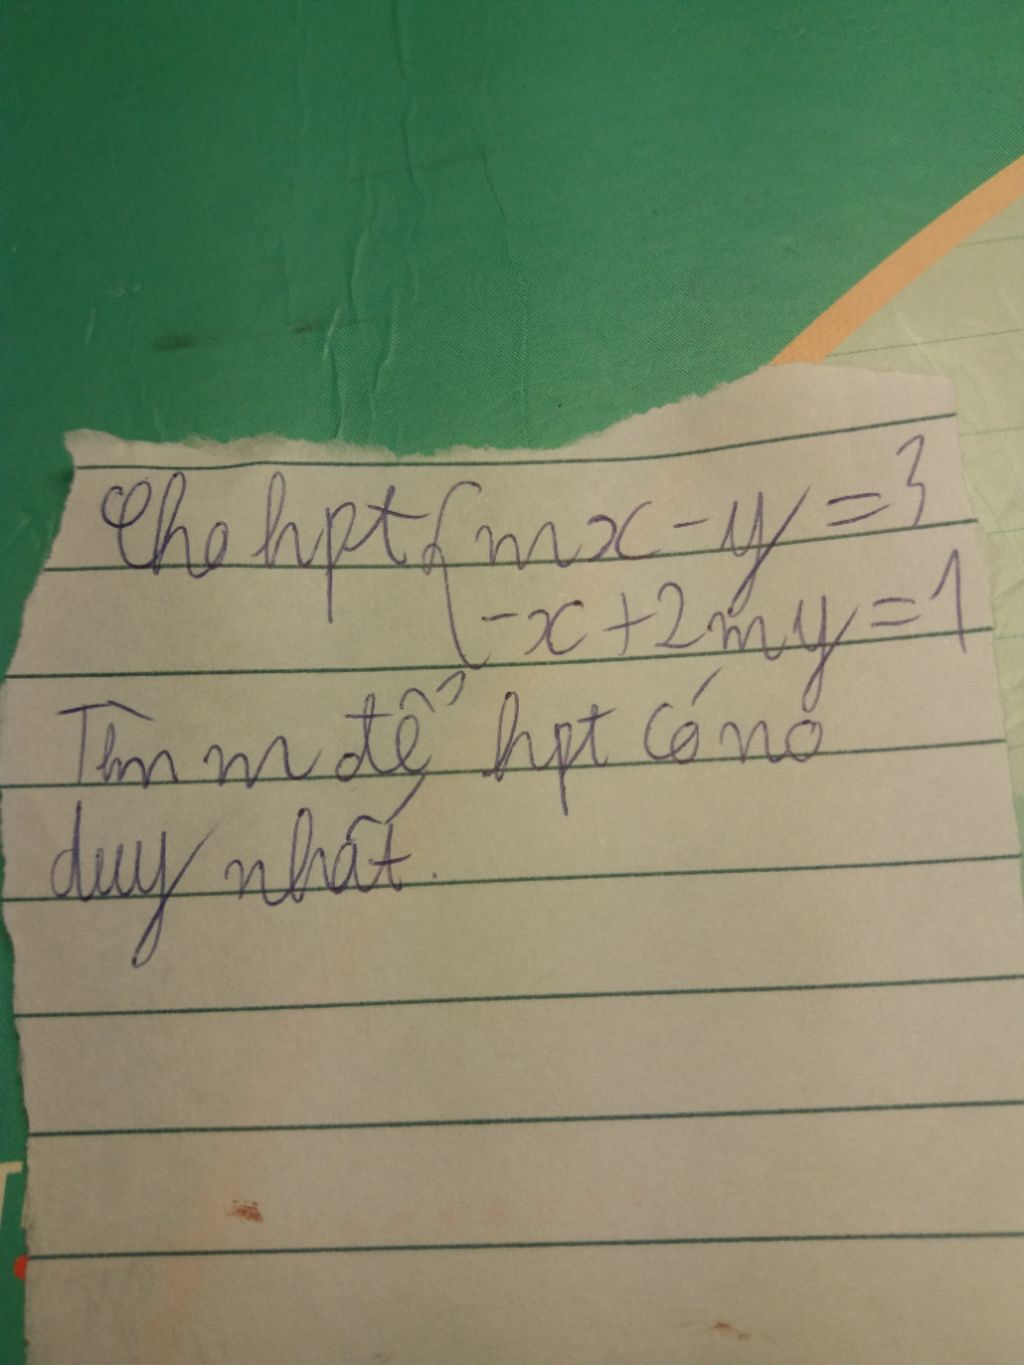 Cho hpt { mx - y = 3
-x + 2my = 1
Tìm m để hpt có no
duy nhất.